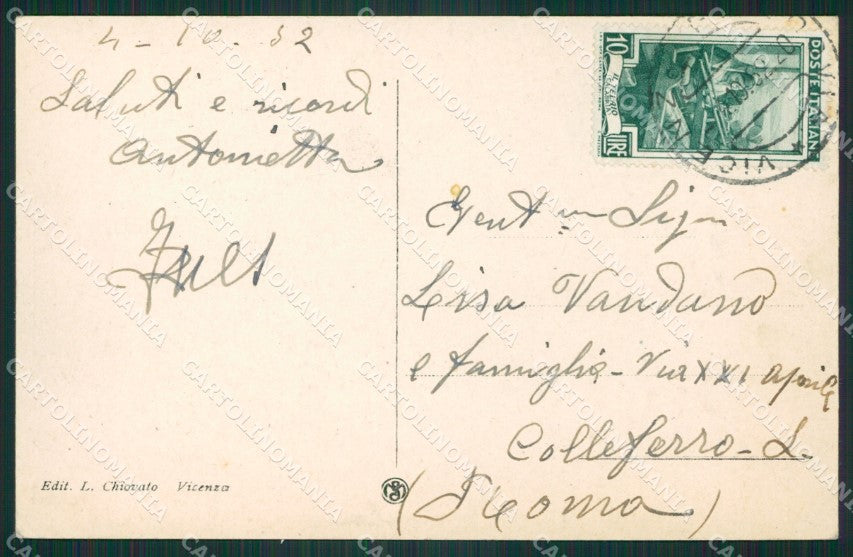 4-10.52
Saluti e ricordi
Antonietta
Edit. L. Chiovato Vicenza
10 LIRE
POSTE ITALIANE
VICENZA
Gent.ma Sig.ra
Lisa Vandano
e famiglia - Via XXI aprile
Colleferro - L.
(Roma)
CARTOLINOMANIA